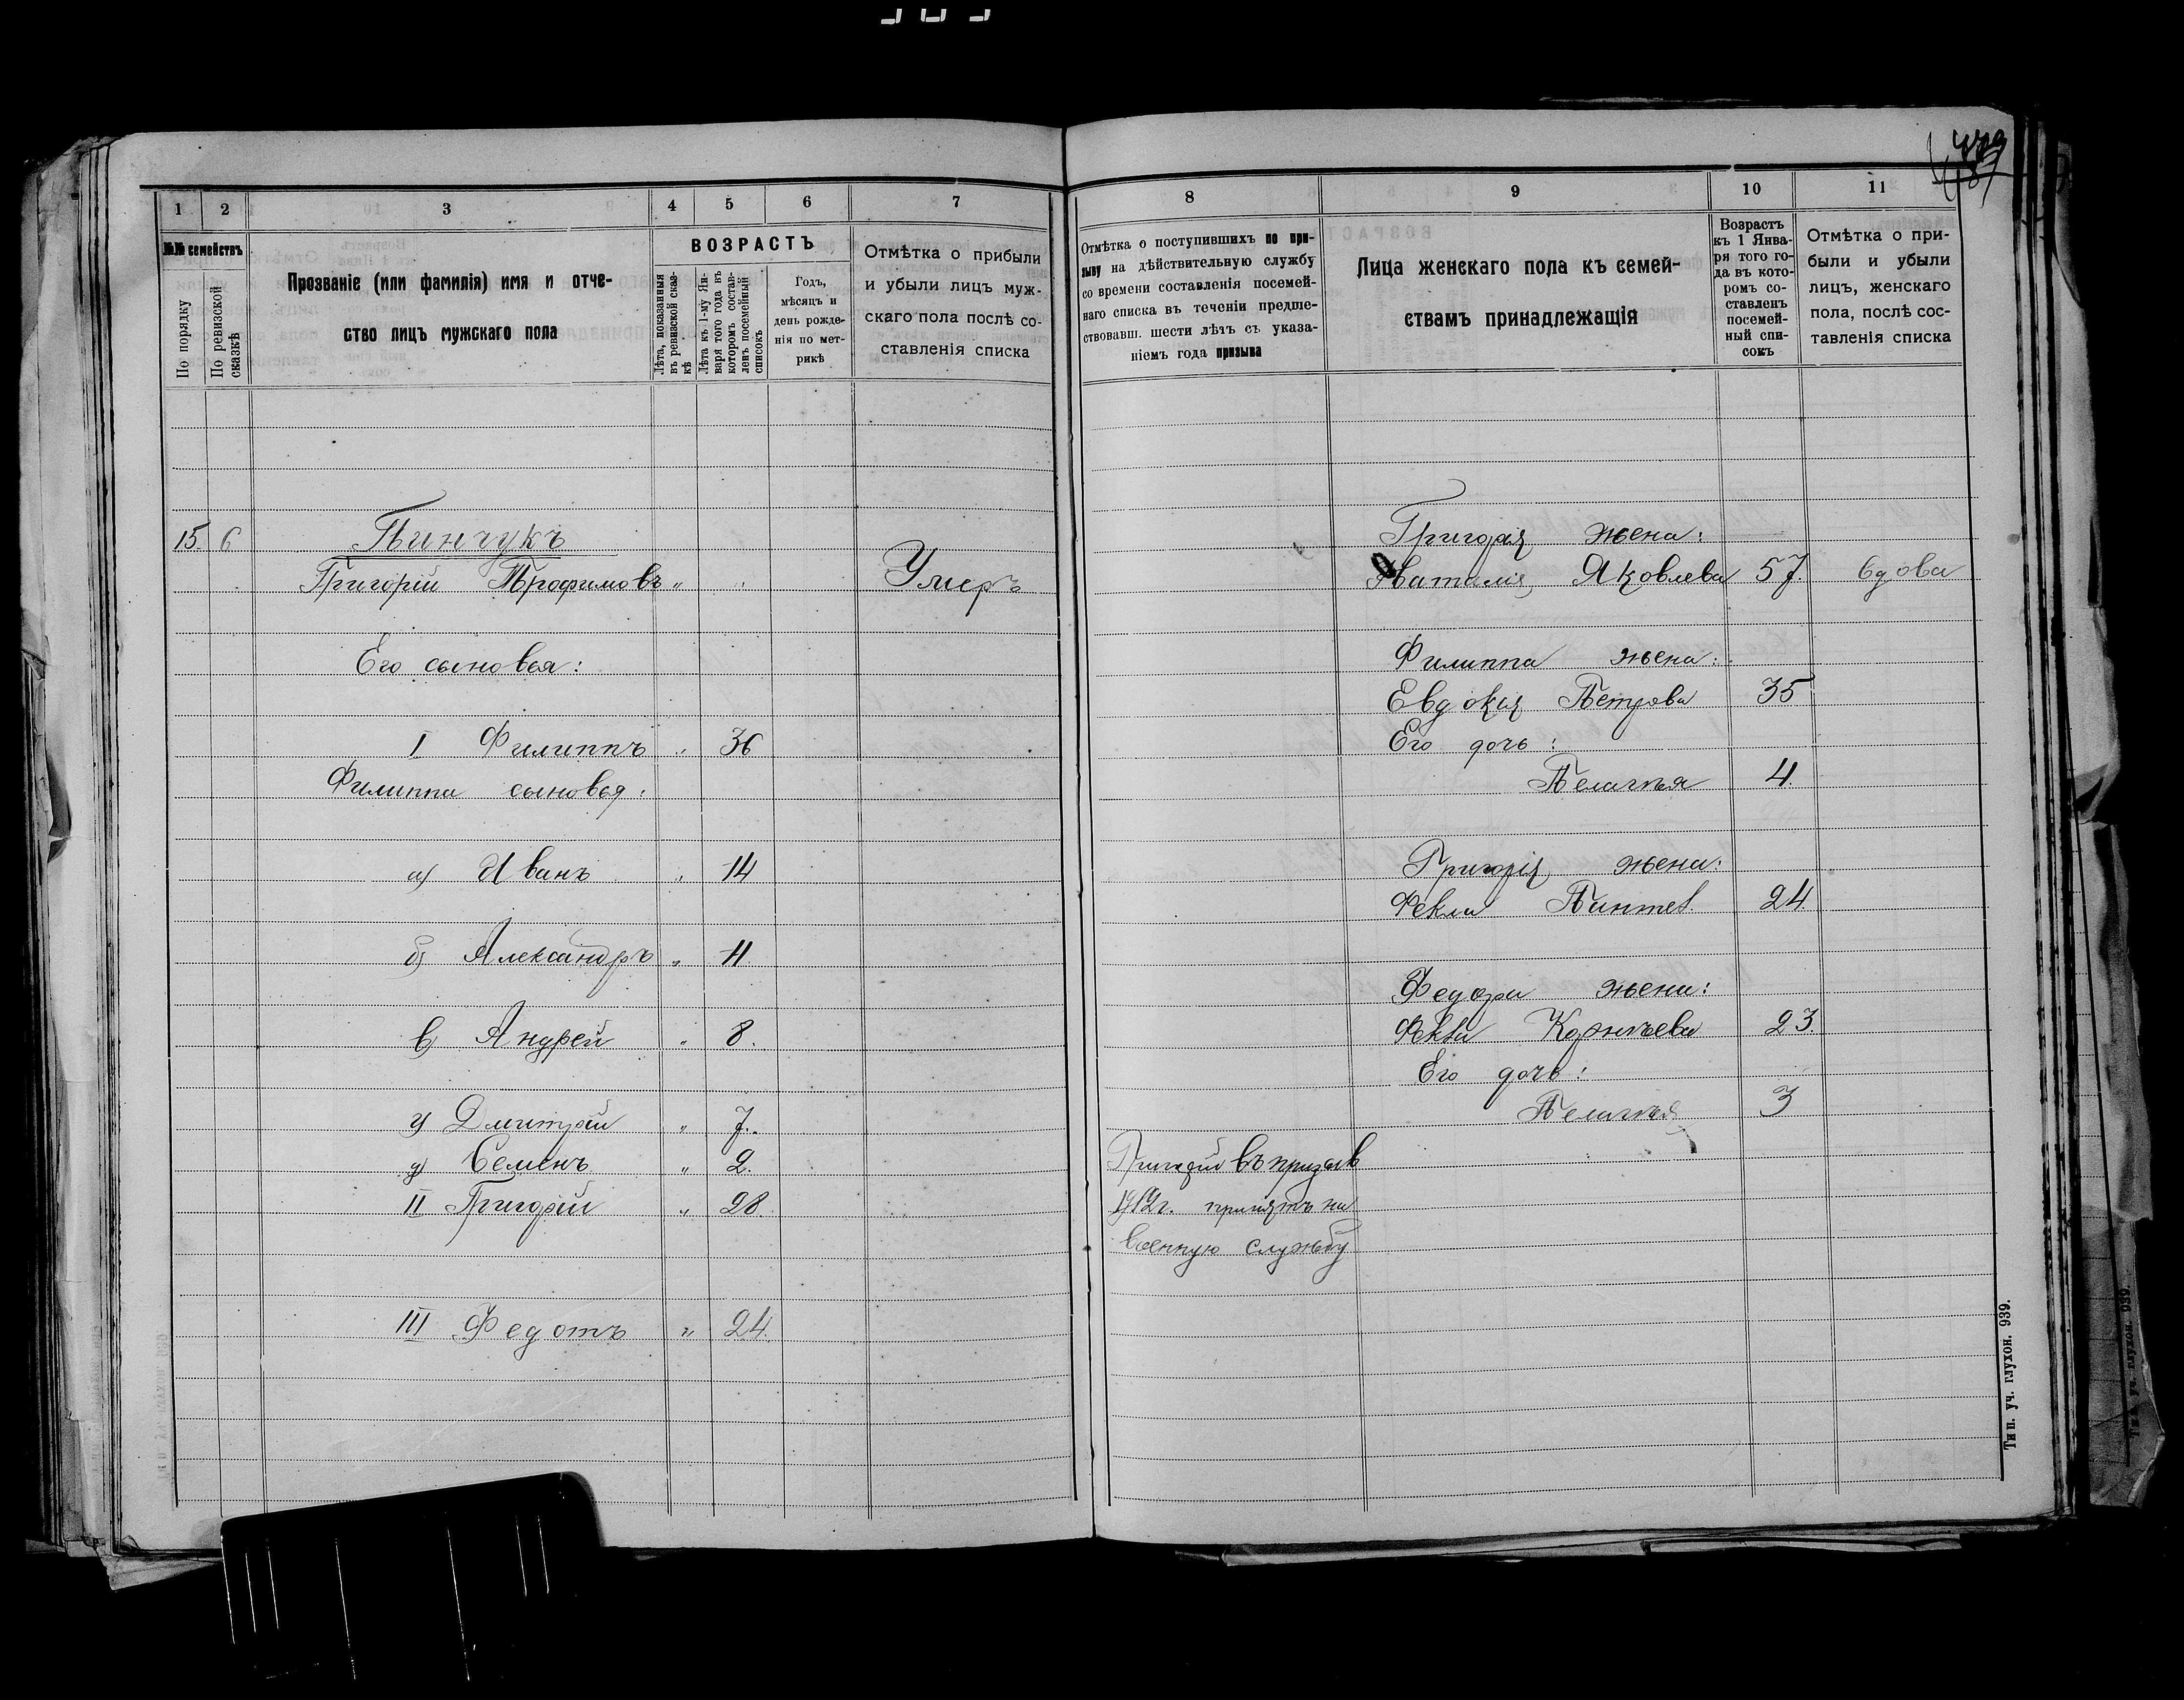 1 2 3 4 5 6 7
№№ семействъ
По порядку
По ревизской сказкѣ
Прозваніе (или фамилія) имя и отче-
ство лицъ мужскаго пола
ВОЗРАСТЪ
Лѣта, показанныя
въ ревизской сказ-
кѣ
Лѣта къ 1-му Ян-
варя того года въ
которомъ состав-
ленъ посемейный
списокъ
Годъ,
мѣсяцъ и
день рожде-
нія по мет-
рикѣ
Отмѣтка о прибыли
и убыли лицъ муж-
скаго пола послѣ со-
ставленія списка
15. 6 Пинчукъ
Григорій Трофимовъ " " Умеръ
Его сыновья:
I Филиппъ " 36
Филиппа сыновья:
а) Иванъ " 14
б) Александръ " 11
в) Андрей " 8.
г) Дмитрій " 7.
д) Семенъ " 2.
II Григорій " 28.
III Федотъ " 24.
8 9 10 11
Отмѣтка о поступившихъ по при-
зыву на дѣйствительную службу
со времени составленія посемей-
наго списка въ теченіи предше-
ствовавш. шести лѣтъ съ указа-
ніемъ года призыва
Лица женскаго пола къ семей-
ствамъ принадлежащія
Возрастъ
къ 1 Янва-
ря того го-
да въ кото-
ромъ со-
ставленъ
посемей-
ный спи-
сокъ
Отмѣтка о при-
были и убыли
лицъ, женскаго
пола, послѣ сос-
тавленія списка
Григорія жена:
Наталія Яковлева 57. вдова
Филиппа жена:
Евдокія Петрова 35
Его дочь:
Пелагея 4.
Григорія жена:
Фекла Пантел. 24.
Федора жена:
Фекла Корнѣева 23.
Его дочь:
Пелагея 3
Григорій въ призыв
1912г. принятъ на
военную службу
Тип. уч. глухон. 939.